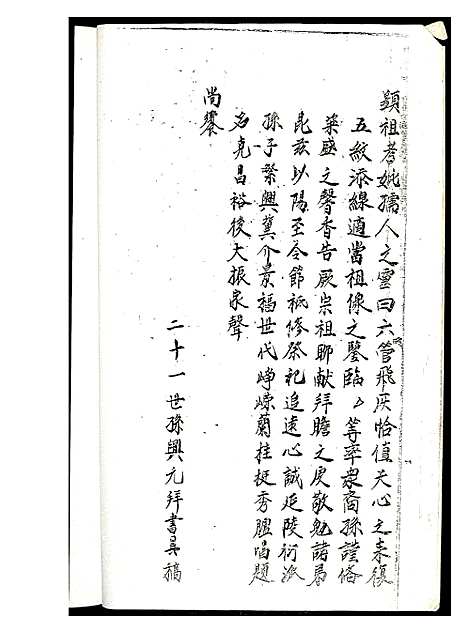 顯祖考妣孺人之靈曰六管飛灰恰值天心之來復
五紋添線適當祖像之鑒臨厶等率眾裔孫謹僃
粢盛之馨香告厥宗祖聊献拜瞻之虔敬勉諸昜
昆兹以陽至令節祗修祭祀追遠心誠延陵衍派
孫子繁興冀介景福世代崢嶸蘭桂挺秀臚唱題
名克昌裕後大振家聲
尚饗
二十一世孫興元拜書吳稿